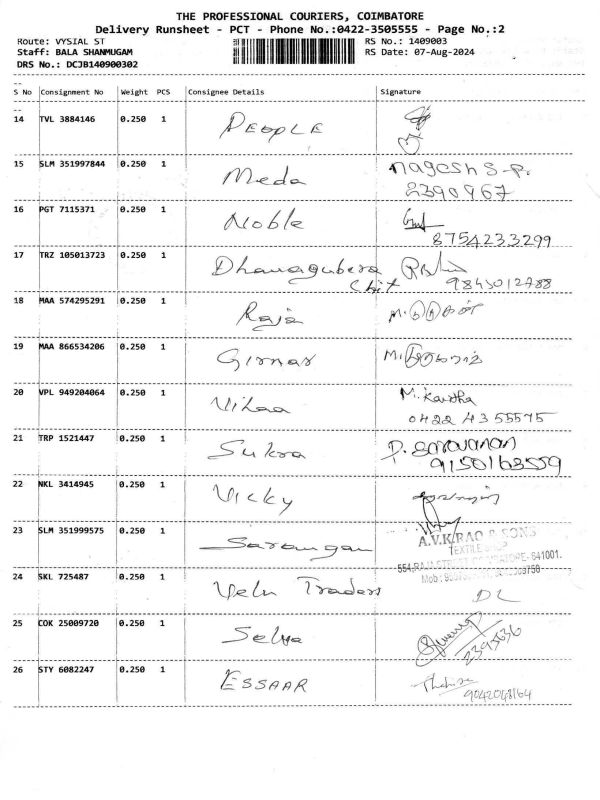 THE PROFESSIONAL COURIERS, COIMBATORE
Delivery Runsheet - PCT - Phone No.:0422-3505555 - Page No.:2
Route: VYSIAL ST RS No.: 1409003
Staff: BALA SHANMUGAM RS Date: 07-Aug-2024
DRS No.: DCJB140900302
S No Consignment No Weight PCS Consignee Details Signature
14 TVL 3884146 0.250 1 PEOPLE
15 SLM 351997844 0.250 1 Meda nagesh S.P.
2390967
16 PGT 7115371 0.250 1 Noble
8754233299
17 TRZ 105013723 0.250 1 Dhanagubera
Chit 9843012788
18 MAA 574295291 0.250 1 Raja
19 MAA 866534206 0.250 1 Girnar
20 VPL 949204064 0.250 1 Vihaa M. Kavitha
0422 4355575
21 TRP 1521447 0.250 1 Sukra P. Saravanan
9150163559
22 NKL 3414945 0.250 1 Vicky
23 SLM 351999575 0.250 1 Sarangan A.V.K.RAO & SONS
24 SKL 725487 0.250 1 Velu Traders DL
25 COK 25009720 0.250 1 Selva
2395636
26 STY 6082247 0.250 1 ESSAAR
9042048164